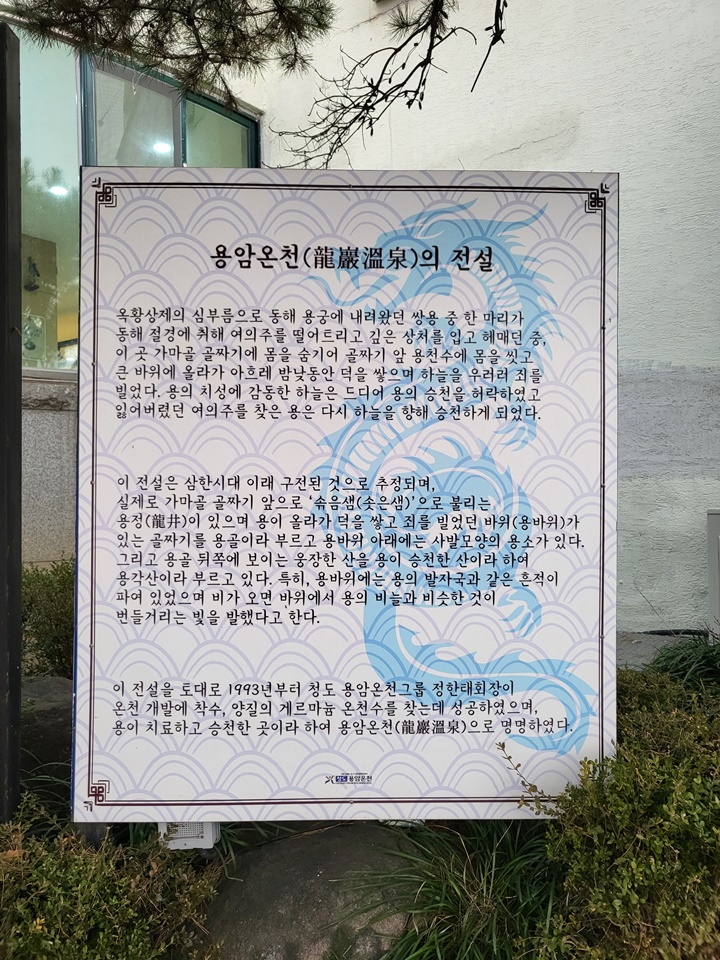 용암온천(龍巖溫泉)의 전설
옥황상제의 심부름으로 동해 용궁에 내려왔던 쌍용 중 한 마리가
동해 절경에 취해 여의주를 떨어트리고 깊은 상처를 입고 헤매던 중,
이 곳 가마골 골짜기에 몸을 숨기어 골짜기 앞 용천수에 몸을 씻고
큰 바위에 올라가 아흐레 밤낮동안 덕을 쌓으며 하늘을 우러러 죄를
빌었다. 용의 치성에 감동한 하늘은 드디어 용의 승천을 허락하였고
잃어버렸던 여의주를 찾은 용은 다시 하늘을 향해 승천하게 되었다.
이 전설은 삼한시대 이래 구전된 것으로 추정되며,
실제로 가마골 골짜기 앞으로 ‘솟음샘(솟은샘)’으로 불리는
용정(龍井)이 있으며 용이 올라가 덕을 쌓고 죄를 빌었던 바위(용바위)가
있는 골짜기를 용골이라 부르고 용바위 아래에는 사발모양의 용소가 있다.
그리고 용골 뒤쪽에 보이는 웅장한 산을 용이 승천한 산이라 하여
용각산이라 부르고 있다. 특히, 용바위에는 용의 발자국과 같은 흔적이
파여 있었으며 비가 오면 바위에서 용의 비늘과 비슷한 것이
번들거리는 빛을 발했다고 한다.
이 전설을 토대로 1993년부터 청도 용암온천그룹 정한태회장이
온천 개발에 착수, 양질의 게르마늄 온천수를 찾는데 성공하였으며,
용이 치료하고 승천한 곳이라 하여 용암온천(龍巖溫泉)으로 명명하였다.
청도 용암온천